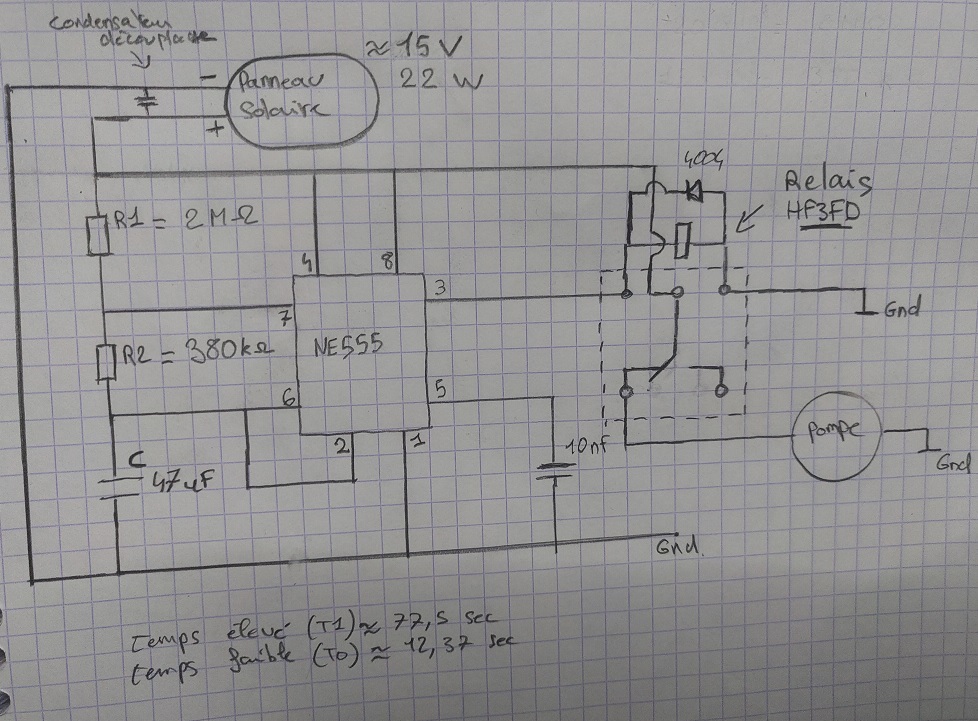 Condensateur
découplage
≈ 15 V
22 W
Panneau
Solaire
-
+
4004
Relais
HF3FD
R1 = 2 MΩ
4
8
3
7
Gnd
R2 = 380kΩ
NE555
6
5
2
1
10nf
Pompe
Gnd
C
47uF
Gnd.
Temps élevé (T1) ≈ 77,5 sec
temps faible (T0) ≈ 12,37 sec